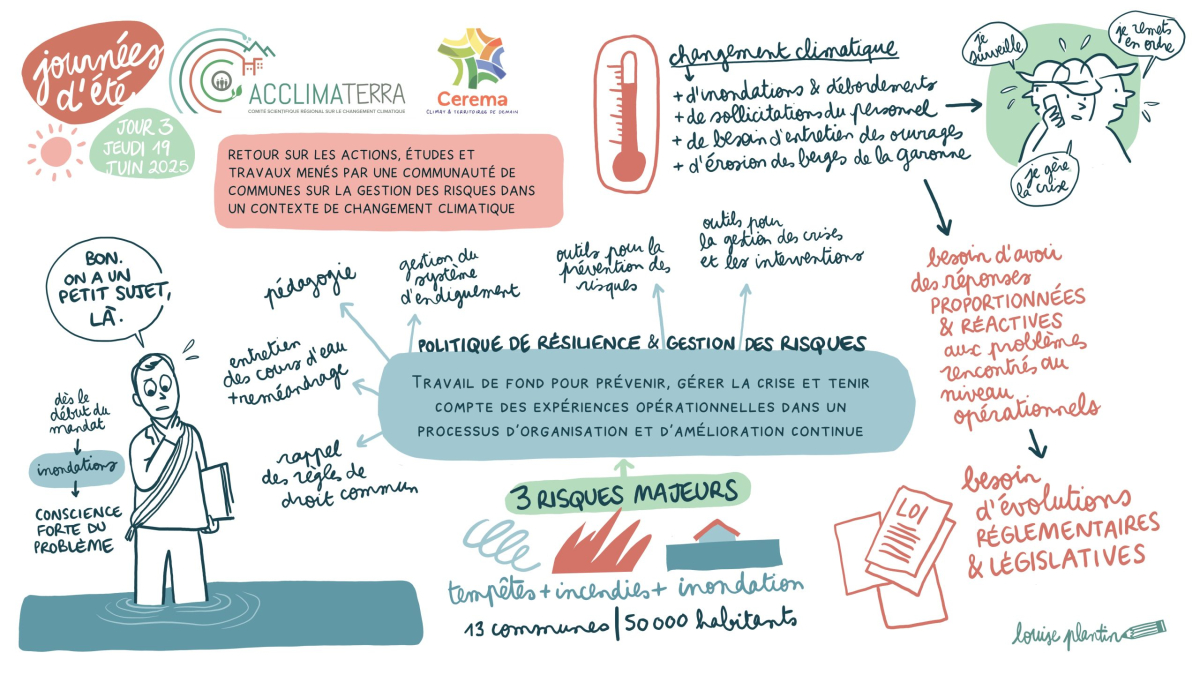 journées
d'été
JOUR 3
JEUDI 19
JUIN 2025
ACCLIMATERRA
COMITÉ SCIENTIFIQUE RÉGIONAL SUR LE CHANGEMENT CLIMATIQUE
Cerema
CLIMAT & TERRITOIRES DE DEMAIN
RETOUR SUR LES ACTIONS, ÉTUDES ET
TRAVAUX MENÉS PAR UNE COMMUNAUTÉ DE
COMMUNES SUR LA GESTION DES RISQUES DANS
UN CONTEXTE DE CHANGEMENT CLIMATIQUE
changement climatique
+ d'inondations & débordements
+ de sollicitations du personnel
+ de besoin d'entretien des ouvrages
+ d'érosion des berges de la Garonne
je
surveille
je remets
en ordre
je gère
la crise
besoin d'avoir
des réponses
PROPORTIONNÉES
& RÉACTIVES
aux problèmes
rencontrés au
niveau
opérationnels
besoin
d'évolutions
RÉGLEMENTAIRES
& LÉGISLATIVES
LOI
BON.
ON A UN
PETIT SUJET,
LÀ.
dès le
début du
mandat
inondations
CONSCIENCE
FORTE DU
PROBLÈME
pédagogie
gestion du
système
d'endiguement
outils pour la
prévention des
risques
outils pour
la gestion des crises
et les interventions
entretien
des cours d'eau
+ reméandrage
rappel
des règles de
droit commun
POLITIQUE DE RÉSILIENCE & GESTION DES RISQUES
TRAVAIL DE FOND POUR PRÉVENIR, GÉRER LA CRISE ET TENIR
COMPTE DES EXPÉRIENCES OPÉRATIONNELLES DANS UN
PROCESSUS D'ORGANISATION ET D'AMÉLIORATION CONTINUE
3 RISQUES MAJEURS
tempêtes + incendies + inondation
13 communes | 50 000 habitants
louise plantin